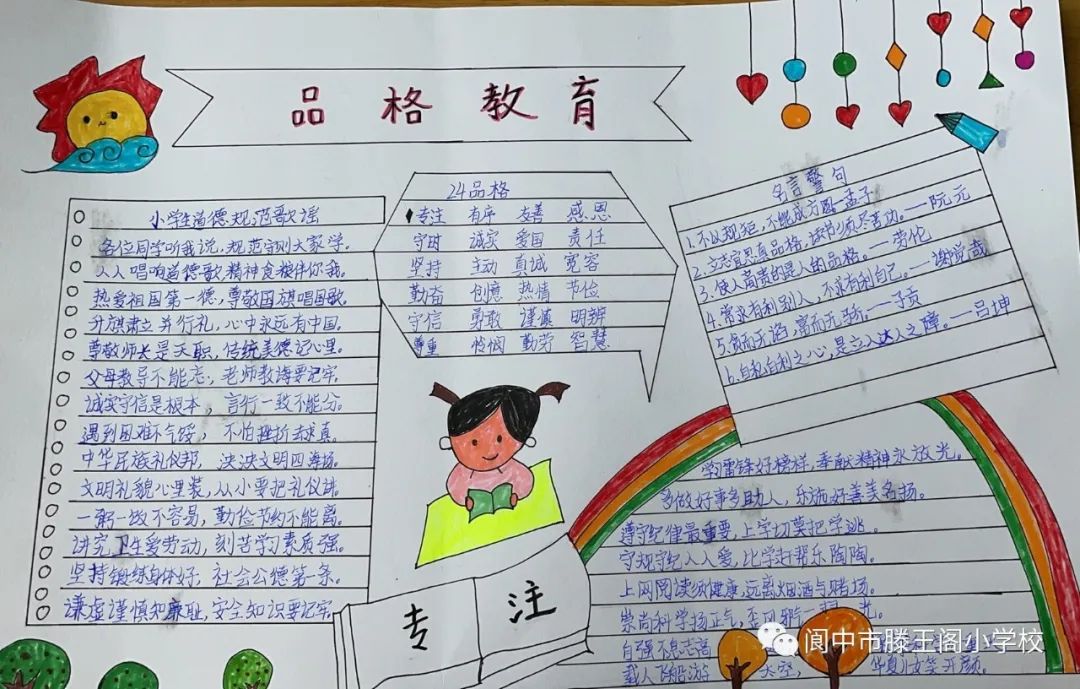 品格教育
小学生道德规范歌谣
各位同学听我说,规范守则大家学。
人人唱响道德歌,精神食粮伴你我。
热爱祖国第一德,尊敬国旗唱国歌。
升旗肃立并行礼,心中永远有中国。
尊敬师长是天职,传统美德记心里。
父母教导不能忘,老师教诲要记牢。
诚实守信是根本,言行一致不能分。
遇到困难不气馁,不怕挫折去求真。
中华民族礼仪邦,泱泱文明四海扬。
文明礼貌心里装,从小要把礼仪讲。
一粥一饭不容易,勤俭节约不能离。
讲究卫生爱劳动,刻苦学习素质强。
坚持锻练身体好,社会公德第一条。
谦虚谨慎知廉耻,安全知识要记牢。
24品格
专注 有序 友善 感恩
守时 诚实 爱国 责任
坚持 主动 真诚 宽容
勤奋 创意 热情 节俭
守信 勇敢 谨慎 明辨
尊重 怜悯 勤劳 智慧
名言警句
1.不以规矩,不能成方圆—孟子
2.立志宜思真品格,读书须尽苦功。——阮元
3.使人高贵的是人的品格。——劳伦
4.常求有利别人,不求有利自己。——谢觉哉
5.贫而无谄,富而无骄。——子贡
6.自私自利之心,是立人达人之障。——吕坤
学雷锋好榜样,奉献精神永放光。
多做好事多助人,乐施好善美名扬。
遵守纪律最重要,上学切莫把学逃。
守规守纪人人爱,比学赶帮乐陶陶。
上网阅读须健康,远离烟酒与赌场。
崇尚科学扬正气,歪风邪气一扫光。
自强不息志高
载人飞船游太空,华夏儿女笑开颜。
专注
阆中市滕王阁小学校